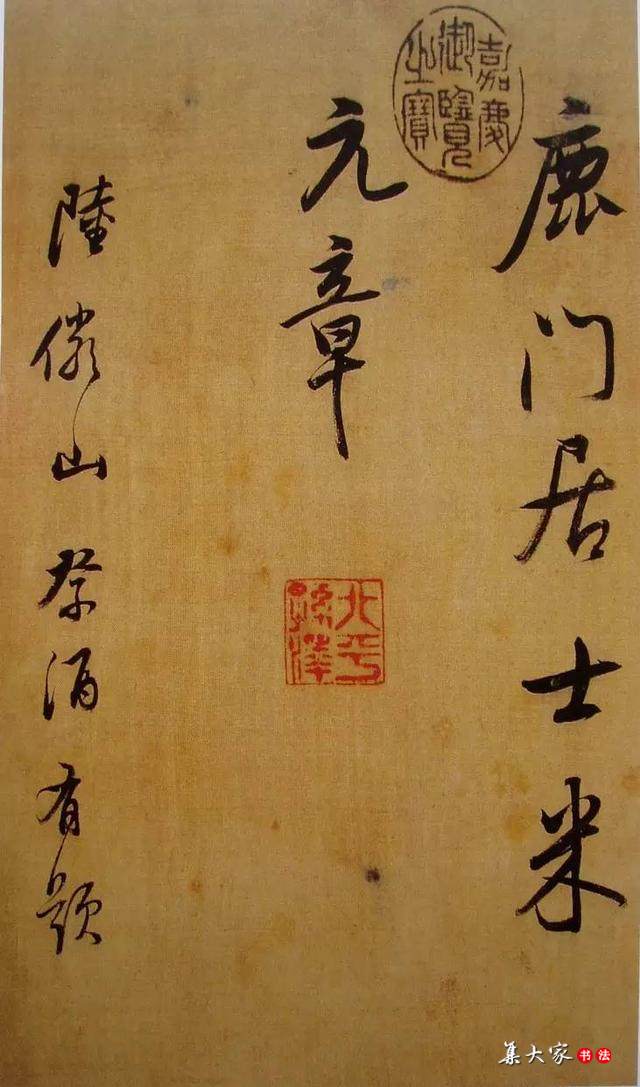 鹿门居士米
元章
陸儼山祭酒有題
嘉慶
御覽
之寶
北平
集大家书法